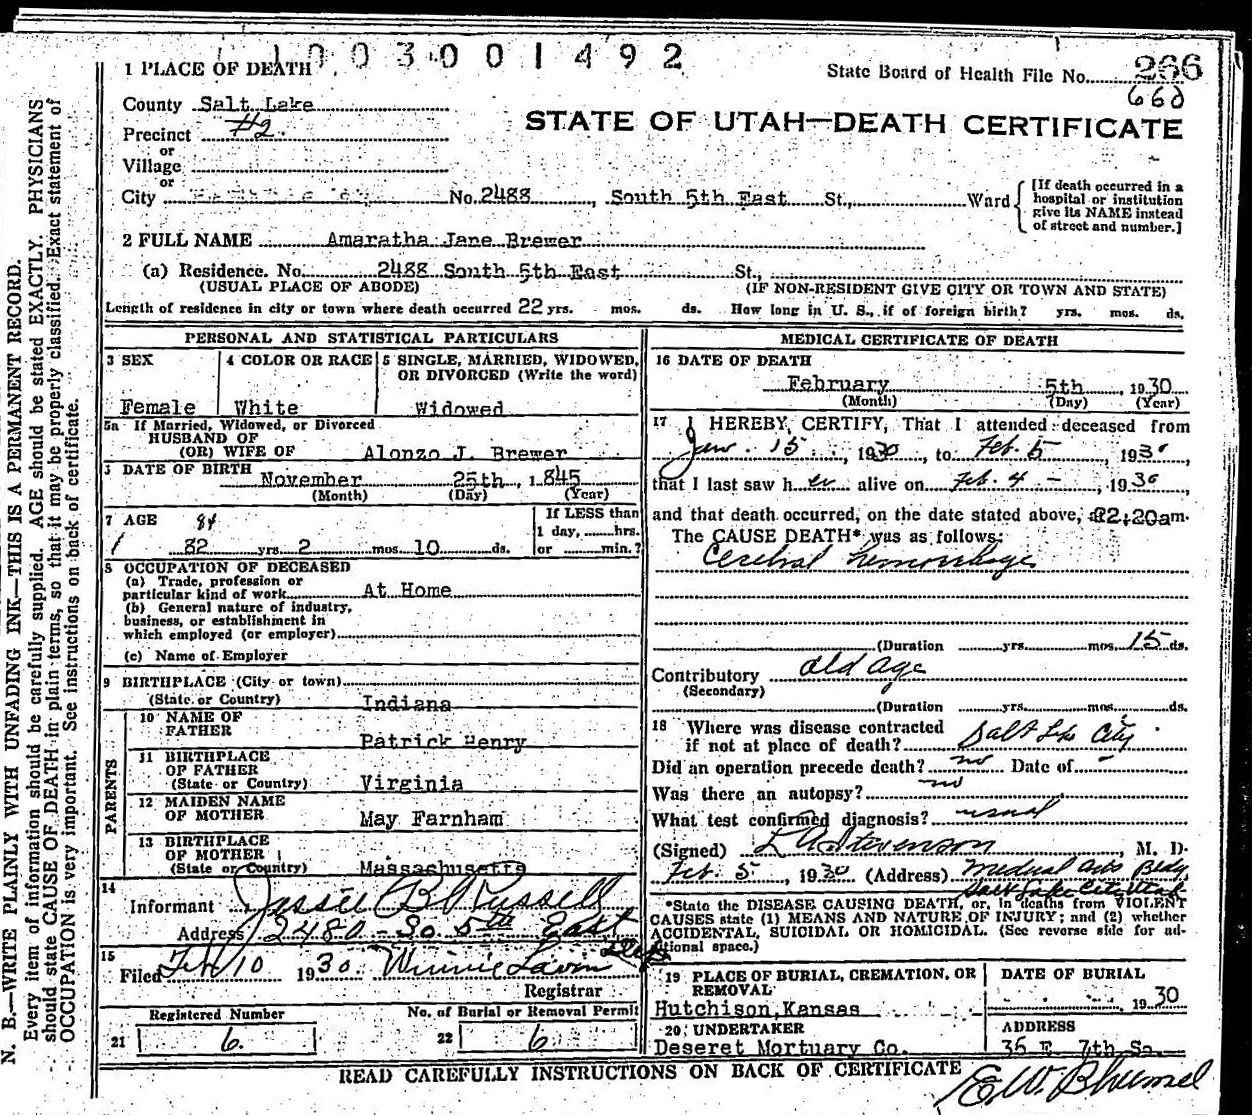 1003001492
1 PLACE OF DEATH
State Board of Health File No. 266
660
County Salt Lake
STATE OF UTAH—DEATH CERTIFICATE
Precinct #2.
or
Village
or
City No. 2488, South 5th East St., Ward
[If death occurred in a hospital or institution give its NAME instead of street and number.]
2 FULL NAME Amaratha Jane Brewer
(a) Residence. No. 2488 South 5th East St.,
(USUAL PLACE OF ABODE) (IF NON-RESIDENT GIVE CITY OR TOWN AND STATE)
Length of residence in city or town where death occurred 22 yrs. mos. ds. How long in U. S., if of foreign birth? yrs. mos. ds.
PERSONAL AND STATISTICAL PARTICULARS
3 SEX 4 COLOR OR RACE 5 SINGLE, MARRIED, WIDOWED,
OR DIVORCED (Write the word)
Female White Widowed
5a If Married, Widowed, or Divorced
HUSBAND OF
(OR) WIFE OF Alonzo J. Brewer
DATE OF BIRTH November 25th, 1845
(Month) (Day) (Year)
7 AGE 84 If LESS than
1 day, hrs.
82 yrs. 2 mos. 10 ds. or min.?
8 OCCUPATION OF DECEASED
(a) Trade, profession or
particular kind of work At Home
(b) General nature of industry,
business, or establishment in
which employed (or employer)
(c) Name of Employer
9 BIRTHPLACE (City or town)
(State or Country) Indiana
PARENTS
10 NAME OF
FATHER Patrick Henry
11 BIRTHPLACE
OF FATHER
(State or Country) Virginia
12 MAIDEN NAME
OF MOTHER May Farnham
13 BIRTHPLACE
OF MOTHER
(State or Country) Massachusetts
14
Informant Jessie B Russell
Address 2480 - So. 5th East
15
Filed Feb 10 1930. Winnie Lavin
Registrar
Registered Number No. of Burial or Removal Permit
21 6. 22 6
MEDICAL CERTIFICATE OF DEATH
16 DATE OF DEATH
February 5th, 1930
(Month) (Day) (Year)
17 I HEREBY, CERTIFY, That I attended deceased from
Jan. 15, 1930, to Feb. 5, 1930,
that I last saw her alive on Feb. 4 -, 1930,
and that death occurred, on the date stated above, at 2:20am.
The CAUSE DEATH* was as follows:
Cerebral hemorrhage
(Duration yrs. mos. 15 ds.
Contributory old age
(Secondary)
(Duration yrs. mos. ds.
18 Where was disease contracted
if not at place of death? Salt Lake City
Did an operation precede death? no Date of -
Was there an autopsy? no
What test confirmed diagnosis? usual
(Signed) L A Stevenson, M. D.
Feb. 5, 1930 (Address) Medical Arts Bldg
Salt Lake City, Utah
*State the DISEASE CAUSING DEATH, or, in deaths from VIOLENT
CAUSES state (1) MEANS AND NATURE OF INJURY; and (2) whether
ACCIDENTAL, SUICIDAL OR HOMICIDAL. (See reverse side for ad-
ditional space.)
19 PLACE OF BURIAL, CREMATION, OR
REMOVAL
Hutchison, Kansas
DATE OF BURIAL
1930
20 UNDERTAKER
Deseret Mortuary Co.
ADDRESS
36 E. 7th So.
READ CAREFULLY INSTRUCTIONS ON BACK OF CERTIFICATE
N. B.—WRITE PLAINLY WITH UNFADING INK—THIS IS A PERMANENT RECORD.
Every item of information should be carefully supplied. AGE should be stated EXACTLY. PHYSICIANS
should state CAUSE OF DEATH in plain terms, so that it may be properly classified. Exact statement of
OCCUPATION is very important. See instructions on back of certificate.